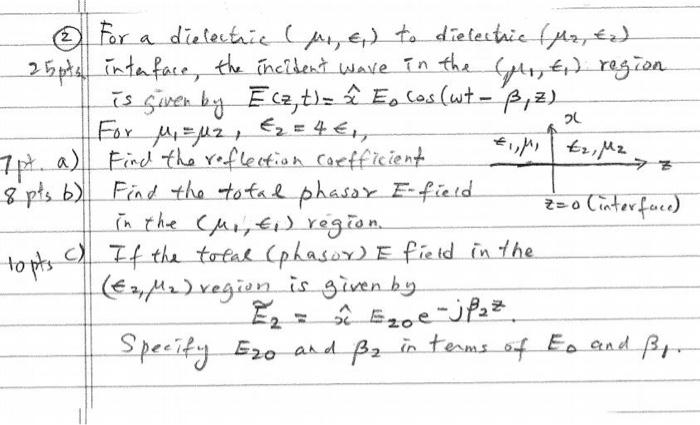 ② For a dielectric (μ₁, ε₁) to dielectric (μ₂, ε₂)
25pts interface, the incident wave in the (μ₁, ε₁) region
is given by E̅(z,t) = x̂ E₀ cos(ωt - β₁z)
For μ₁ = μ₂, ε₂ = 4ε₁,
7pt. a) Find the reflection coefficient
8 pts b) Find the total phasor E-field
in the (μ₁, ε₁) region.
x
ε₁, μ₁ ε₂, μ₂
z
z=0 (interface)
10pts c) If the total (phasor) E field in the
(ε₂, μ₂) region is given by
Ẽ₂ = x̂ E₂₀ e^{-jβ₂z}.
Specify E₂₀ and β₂ in terms of E₀ and β₁.